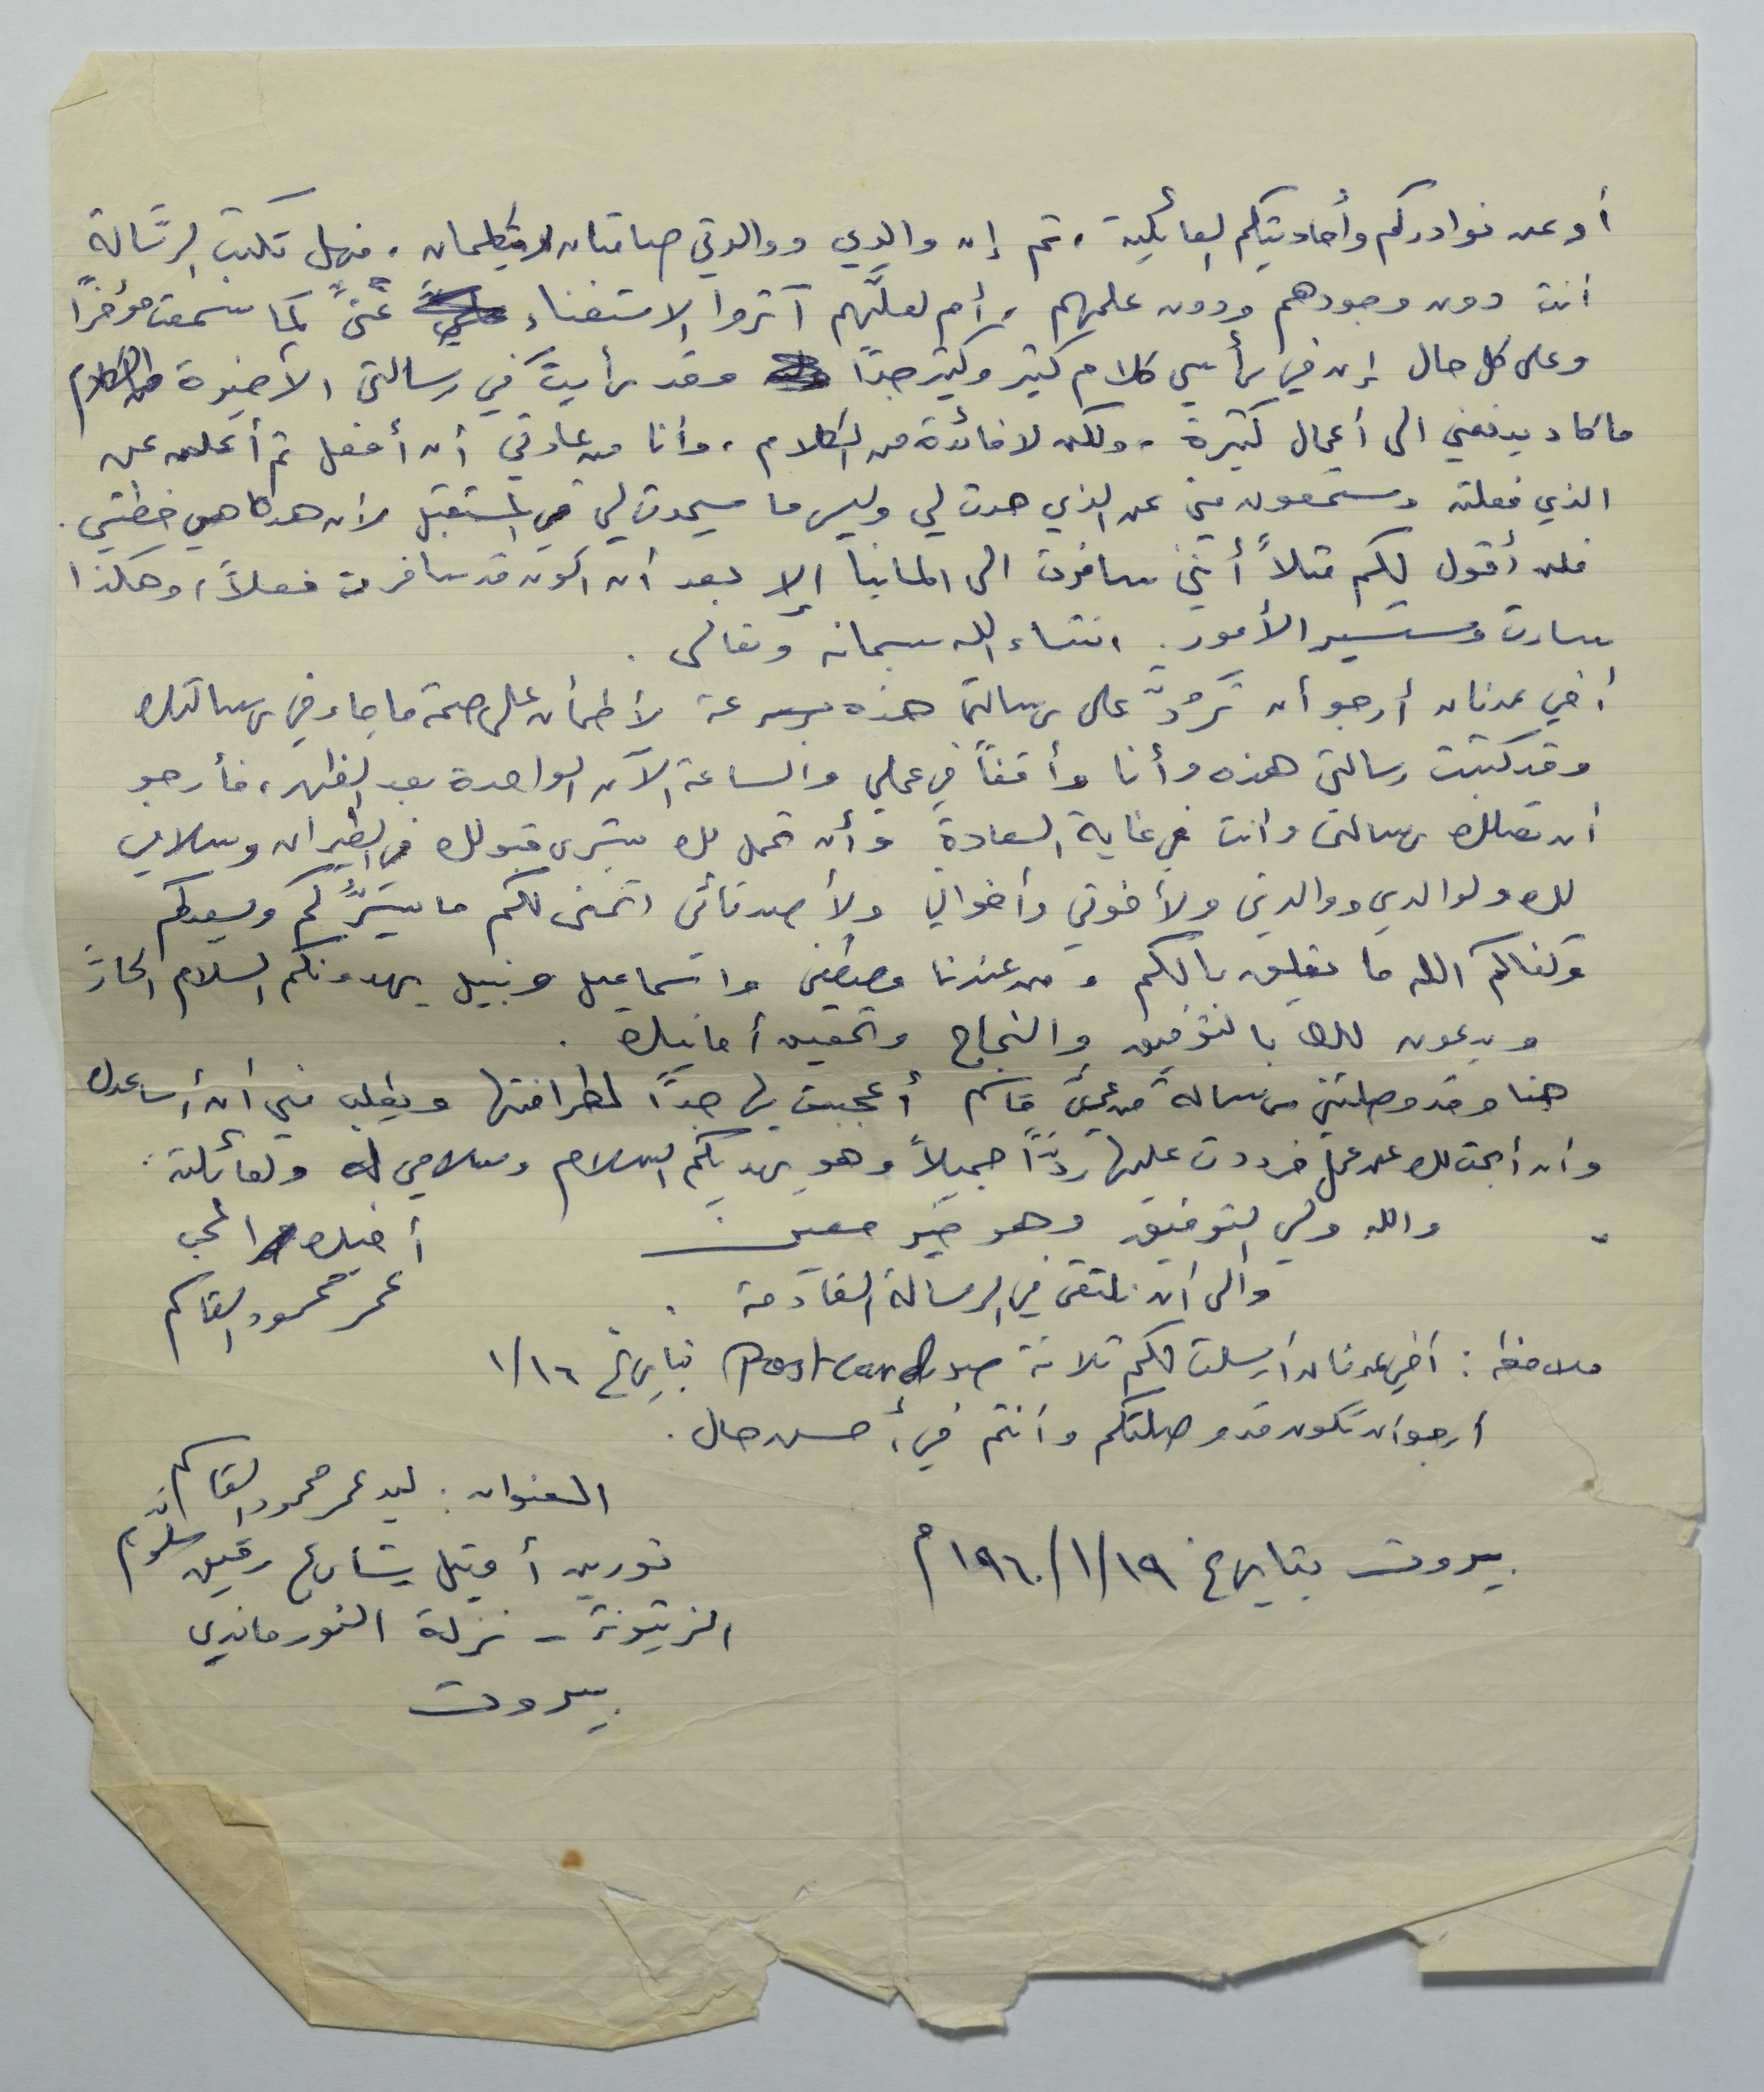 أو عن نوادركم وأحاديثكم العائلية، ثم إن والدي ووالدتي صامتان لا يتكلمان، فهل تكتب الرّسالة
أنت دون وجودهم ودون علمهم، أم لعلّهم آثروا الاستغناء عنّي كما سمعت مؤخراً
وعلى كل حال إن في رأسي كلام كثير وكثير جداً وقد رأيتَ في رسالتي الأخيرة من الكلام
ما كاد يدفعني الى أعمال كثيرة، ولكن لا فائدة من الكلام، وأنا من عادتي أن أفعل ثم أعلن عن
الذي فعلته وستسمعون مني عن الذي حدث لي وليس ما سيحدث لي في المستقبل لأن هذه هي خطتي.
فلن أقول لكم مثلاً أنني سافرت الى المانيا إلا بعد أن اكون قد سافرت فعلاً، وهكذا
سارت وستسير الأمور. انشاء الله سبحانه وتعالى.
أخي عدنان أرجو أن تَرُدّ على رسالتي هذه بسرعة لأطمأن على صحة ما جاء في رسالتك
وقد كتبت رسالتي هذه وأنا واقفاً في عملي والساعة الآن الواحدة بعد الظهر، فأرجو
ان تصلك رسالتي وانت في غاية السعادة وأن تحمل لك بشرى قبولك في الطيران وسلامي
لك ولوالدي ووالدتي ولأخوتي وأخوالي ولأصدقائي اتمنى لكم ما يسرُّكم ويسعدكم
وكفاكم الله ما يقلق بالكم ومن عندنا مصطفى واسماعيل ونبيل يهدونكم السلام الحارّ
ويدعون لك بالتوفيق والنجاح وتحقيق أمانيك.
هنا وقد وصلتني رسالة من عمّي قاسم أعجبت بها جداً لطرافتها ويطلب مني أن أساعدك
وان أبحث لك عن عمل فرددت عليها ردّاً جميلاً وهو يهديكم السلام وسلامي له ولعائلته.
والله ولي التوفيق وهو خير معين. أخيك المحب
والى ان نلتقي في الرسالة القادمة. عمر محمود القاسم
ملاحظة: أخي عدنان أرسلت لكم ثلاثة صور Postcard بتاريخ ١/١٦
ارجو ان تكون قد وصلتكم وأنتم في أحسن حال.
العنوان: ليد عمر محمود القاسم
بيروت بتاريخ ١٩٦٠/١/١٩م
نورين أوتيل شارع رفيق سلوم
الزيتونة - نزلة النورماندي
بيروت